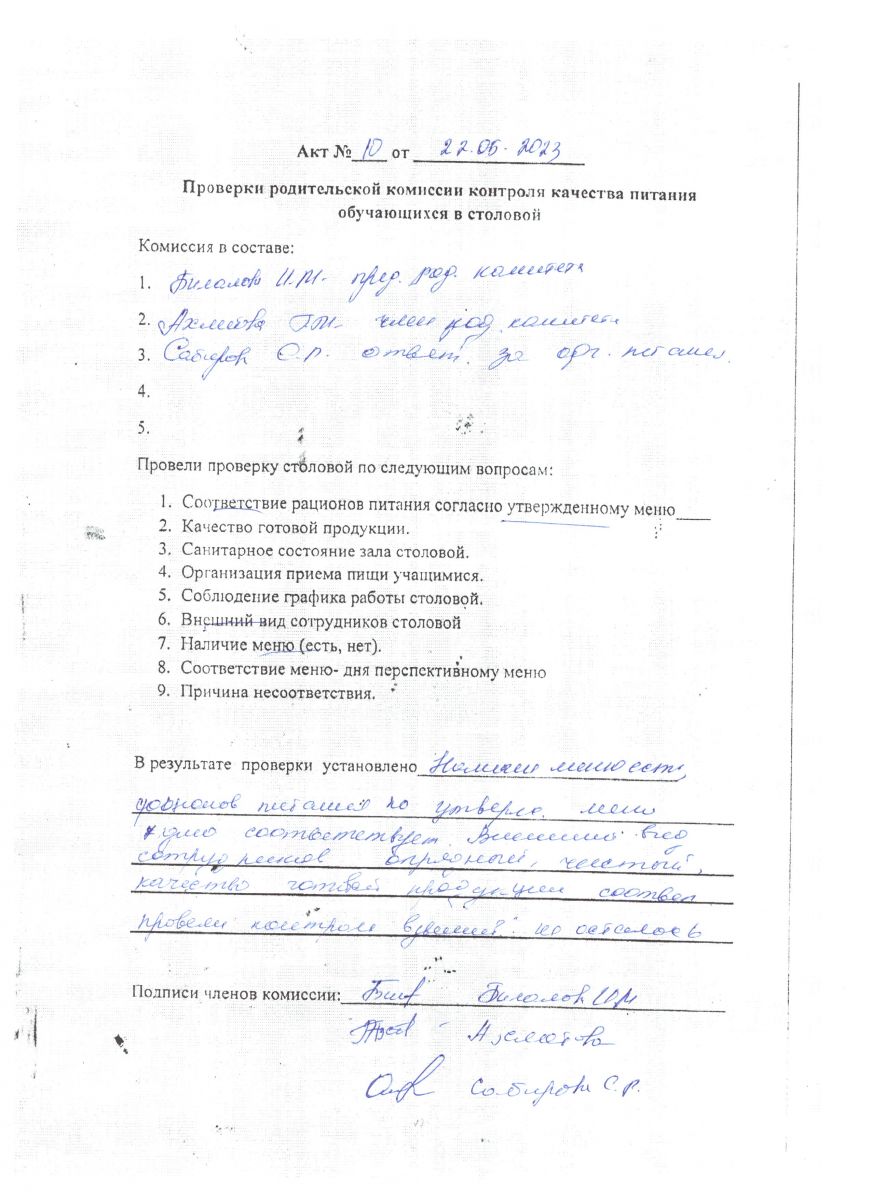 Акт № 10 от 22.05.2023
Проверки родительской комиссии контроля качества питания
обучающихся в столовой
Комиссия в составе:
1. Билалова И.М. пред. род. комитета
2. Ахметова член род. комитета
3. Сабирова С.Р. ответ. за орг. питания.
4.
5.
Провели проверку столовой по следующим вопросам:
1. Соответствие рационов питания согласно утвержденному меню____
2. Качество готовой продукции.
3. Санитарное состояние зала столовой.
4. Организация приема пищи учащимися.
5. Соблюдение графика работы столовой.
6. Внешний вид сотрудников столовой
7. Наличие меню (есть, нет).
8. Соответствие меню- дня перспективному меню
9. Причина несоответствия.
В результате проверки установлено меню есть,
питания по утверд. меню
соответствует. Внешний вид
сотрудников опрятный, чистый,
качество готовой продукции соответ
провели контрол
Подписи членов комиссии: Билалова И.М
Ахметова
Сабирова С.Р.